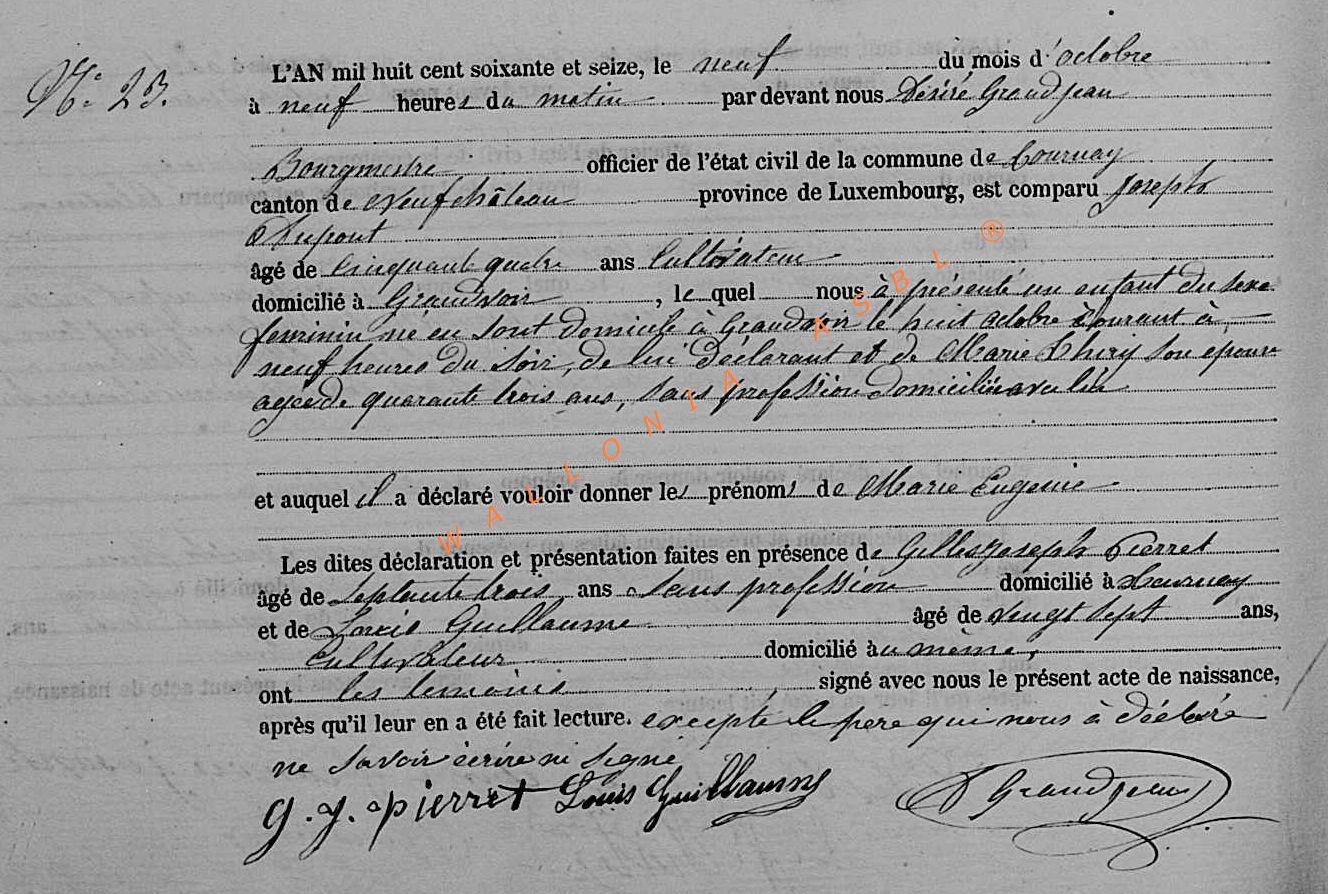 N° 23.
L'AN mil huit cent soixante et seize, le neuf du mois d'octobre
à neuf heures du matin par devant nous Désiré Grandjean
Bourgmestre officier de l'état civil de la commune de Tournay
canton de Neufchâteau province de Luxembourg, est comparu Joseph
Dupont
âgé de cinquante quatre ans Cultivateur
domicilié à Grandvoir, le quel nous à présenté un enfant du sexe
feminin né en sont domicile à Grandvoir le huit octobre courant à
neuf heures du soir, de lui déclarant et de Marie Thiry son epouse
agée de quarante trois ans, sans profession domiciliée avec lui
et auquel il a déclaré vouloir donner les prénoms de Marie Eugenie
Les dites déclaration et présentation faites en présence de Gilles Joseph Pierret
âgé de septante trois ans sans profession domicilié à Tournay
et de Louis Guillaume âgé de vingt sept ans,
Cultivateur domicilié au même,
ont les temoins signé avec nous le présent acte de naissance,
après qu'il leur en a été fait lecture. excepté le pere qui nous à déclaré
ne savoir écrire ni signé
G. J. Pierret Louis Guillaume D Grandjean
WALLONIA ASBL ®